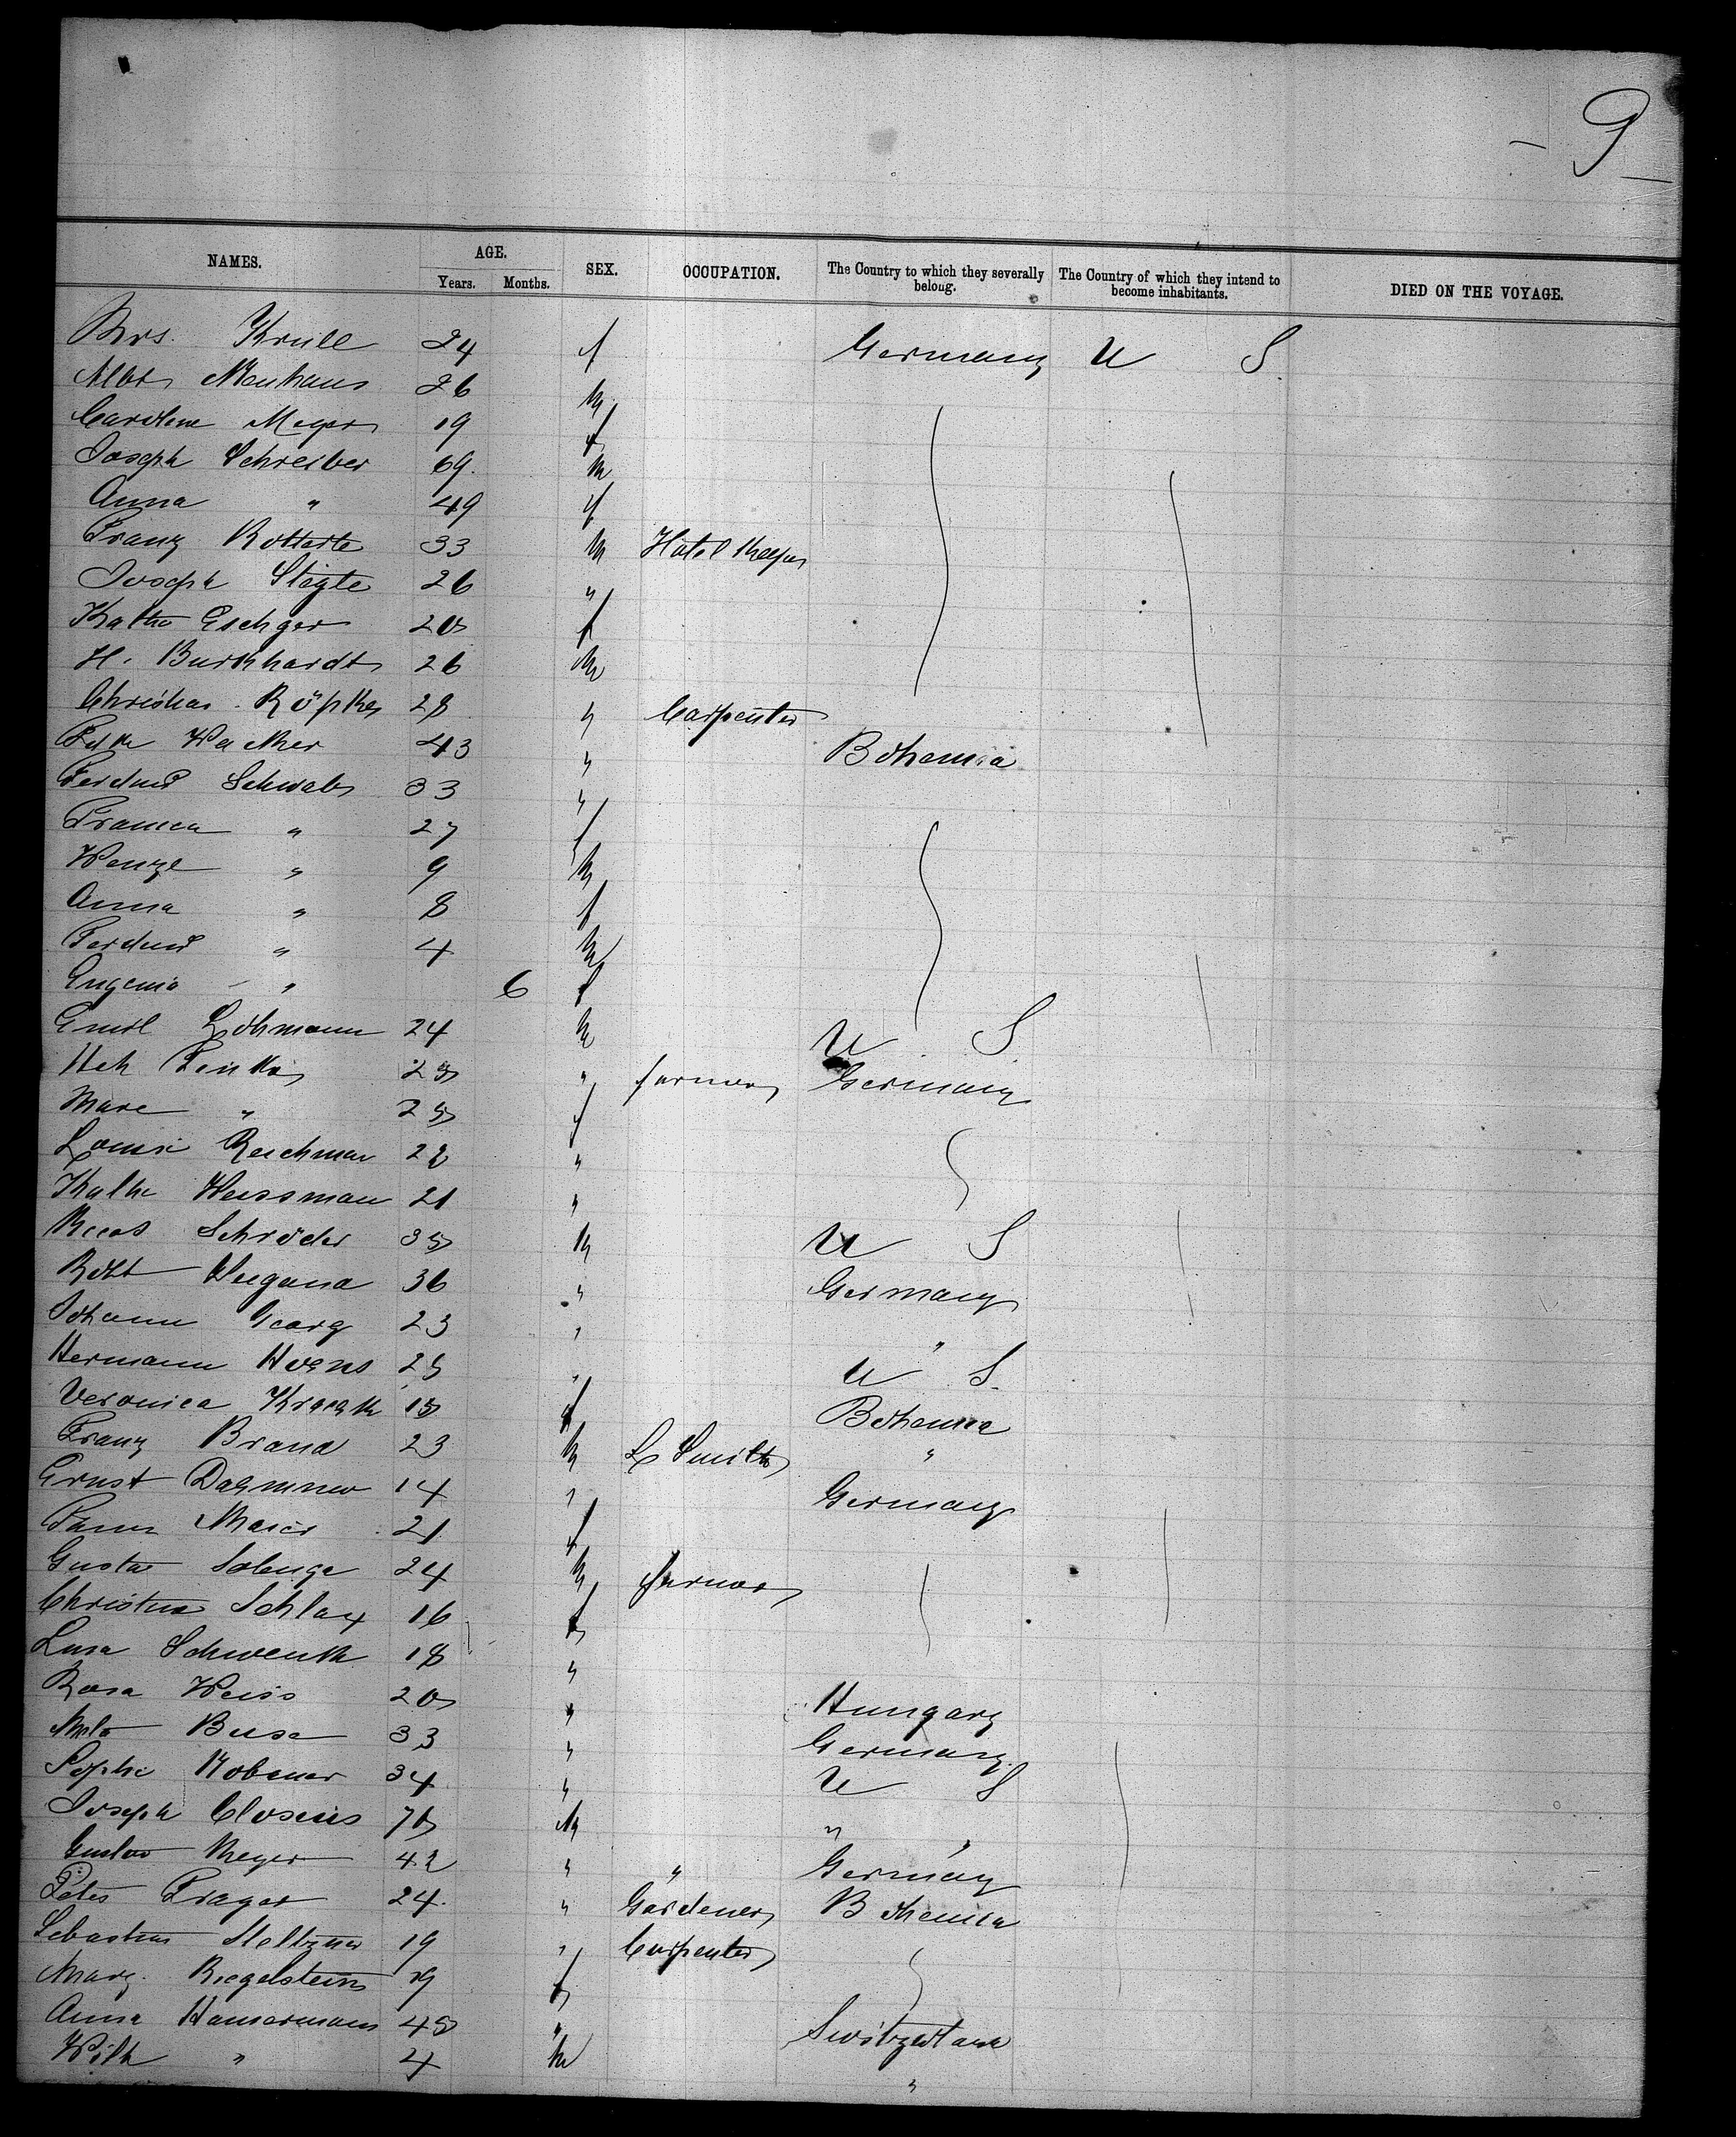 - 9 -
NAMES. AGE. Years. Months. SEX. OCCUPATION. The Country to which they severally belong. The Country of which they intend to become inhabitants. DIED ON THE VOYAGE.
Mrs. Krull 24 f Germany U S.
Albt Neuhaus 26 m
Caroline Meyer 19 f
Joseph Schreiber 69. m
Anna " 49 f
Franz Rotterte 33 m Hotel Keeper
Joseph Stegte 26 "
Kathe Eschger 20 f
H. Burkhardt 26 m
Christian Röpke 28 " Carpenter
Wacker 43 " Bohemia
Ferdind Schwab 33 "
Franica " 27 f
Wenzl " 9 m
Anna " 8 f
Ferdind " 4 m
Eugenia " 6 f
Emil Lohmann 24 m U S
Hch Finke 25 " farmer Germany
Marie " 25 f
Louise Reichman 22 "
Kathe Weissman 21 "
Schröder 35 m U S
Robt Wiegand 36 " Germany
Johann Georg 23 " "
Hermann 25 " U S.
Veronica 15 f Bohemia
Franz Brand 23 m L Smith "
Ernst 14 " Germany
Maier 21 f
Gustav 24 m farmer
Christine Schlax 16 f
Lina Schwenk 18 "
Rosa Weiss 20 " Hungary
Buse 33 " Germany
Sophie 34 " U S
Joseph Closeus 70 m " "
Gustav Meyer 42 " " Germany
Peter Prager 24. " Gardener Bohemia
Sebastian Steltzner 19 " Carpenter
Marg. Riegelstein 19 f
Anna Hausermann 45 " Switzerland
Wilh " 4 m "